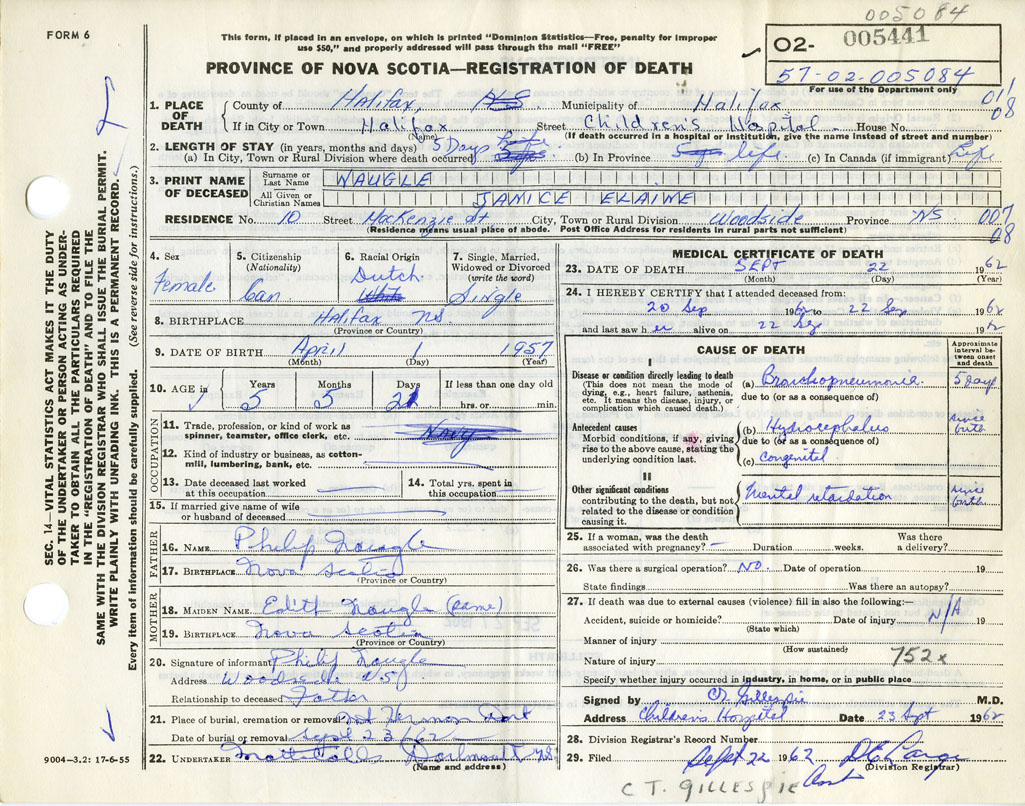 005084
FORM 6
This form, if placed in an envelope, on which is printed "Dominion Statistics—Free, penalty for improper
use $50," and properly addressed will pass through the mail "FREE"
02- 005441
57-02-005084
For use of the Department only
PROVINCE OF NOVA SCOTIA—REGISTRATION OF DEATH
1. PLACE OF DEATH County of Halifax, N S Municipality of Halifax 01/08
If in City or Town Halifax (Name) Street Children's Hospital House No.
(If death occurred in a Hospital or Institution, give the name instead of street and number)
2. LENGTH OF STAY (in years, months and days)
(a) In City, Town or Rural Division where death occurred 5 Days (b) In Province life. (c) In Canada (if immigrant) Life
3. PRINT NAME OF DECEASED Surname or Last Name WAUGLE
All Given or Christian Names JANICE ELAINE
RESIDENCE No. 10 Street MacKenzie St City, Town or Rural Division Woodside Province NS 007
08
(Residence means usual place of abode. Post Office Address for residents in rural parts not sufficient)
4. Sex Female
5. Citizenship (Nationality) Can
6. Racial Origin Dutch White
7. Single, Married, Widowed or Divorced (write the word) Single
8. BIRTHPLACE Halifax NS.
(Province or Country)
9. DATE OF BIRTH April 1 1957
(Month) (Day) (Year)
10. AGE in Years 5 Months 5 Days 21 If less than one day old hrs. or min.
OCCUPATION
11. Trade, profession, or kind of work as spinner, teamster, office clerk, etc. Navy
12. Kind of industry or business, as cotton-mill, lumbering, bank, etc.
13. Date deceased last worked at this occupation
14. Total yrs. spent in this occupation
15. If married give name of wife or husband of deceased
FATHER
16. NAME Philip Naugle
17. BIRTHPLACE Nova Scotia
(Province or Country)
MOTHER
18. MAIDEN NAME Edith Naugle (same)
19. BIRTHPLACE Nova Scotia
(Province or Country)
20. Signature of informant Philip Naugle
Address Woodside N.S.
Relationship to deceased Father
21. Place of burial, cremation or removal Mt Hermon Dart
Date of burial or removal Sept 23/62
22. UNDERTAKER Mattatalls Dartmouth NS
(Name and address)
MEDICAL CERTIFICATE OF DEATH
23. DATE OF DEATH SEPT 22 1962
(Month) (Day) (Year)
24. I HEREBY CERTIFY that I attended deceased from:
20 Sep 1962 to 22 Sep 1962
and last saw her alive on 22 Sep 1962
CAUSE OF DEATH
Approximate interval between onset and death
I
Disease or condition directly leading to death
(This does not mean the mode of dying, e.g., heart failure, asthenia, etc. It means the disease, injury, or complication which caused death.)
(a) Bronchopneumonia 5 days
due to (or as a consequence of)
Antecedent causes
Morbid conditions, if any, giving rise to the above cause, stating the underlying condition last.
(b) Hydrocephalus since birth
due to (or as a consequence of)
(c) Congenital
II
Other significant conditions
contributing to the death, but not related to the disease or condition causing it.
Mental retardation since birth
25. If a woman, was the death associated with pregnancy? Duration weeks. Was there a delivery?
26. Was there a surgical operation? NO. Date of operation 19
State findings Was there an autopsy?
27. If death was due to external causes (violence) fill in also the following:—
Accident, suicide or homicide? Date of injury N/A 19
(State which)
Manner of injury
(How sustained)
Nature of injury 752x
Specify whether injury occurred in industry, in home, or in public place
Signed by CT Gillespie M.D.
Address Children's Hospital Date 23 Sept 1962
28. Division Registrar's Record Number
29. Filed Sept 22 1962
(Division Registrar)
C T. GILLESPIE
SEC. 14—VITAL STATISTICS ACT MAKES IT THE DUTY
OF THE UNDERTAKER OR PERSON ACTING AS UNDER-
TAKER TO OBTAIN ALL THE PARTICULARS REQUIRED
IN THE "REGISTRATION OF DEATH" AND TO FILE THE
SAME WITH THE DIVISION REGISTRAR WHO SHALL ISSUE THE BURIAL PERMIT.
WRITE PLAINLY WITH UNFADING INK. THIS IS A PERMANENT RECORD.
Every item of information should be carefully supplied. (See reverse side for instructions.)
9004—3.2: 17-6-55